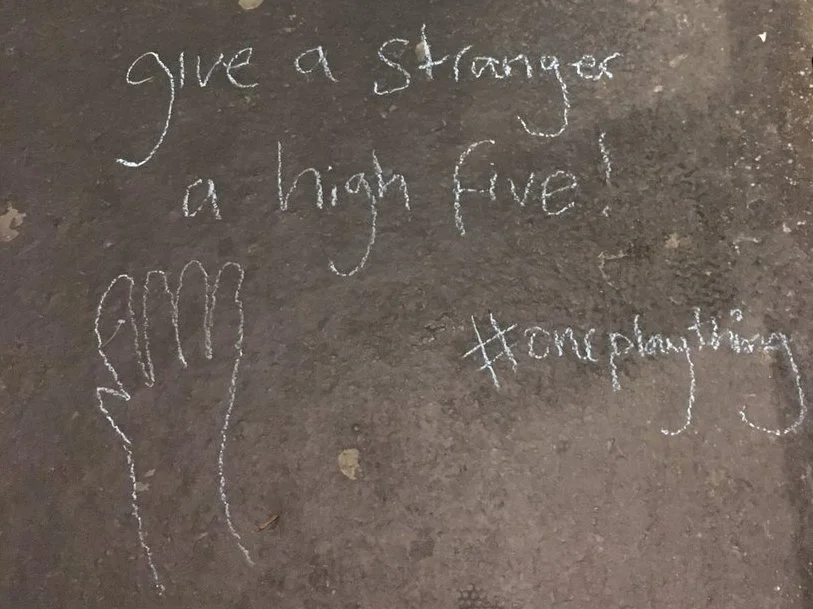 give a stranger
a high five!
#oneplaything